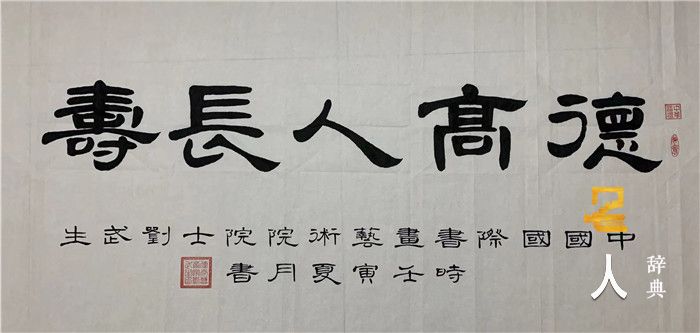 德髙人長壽
中國國際書畫藝術院院士劉武生
時壬寅夏月書
人
辞典